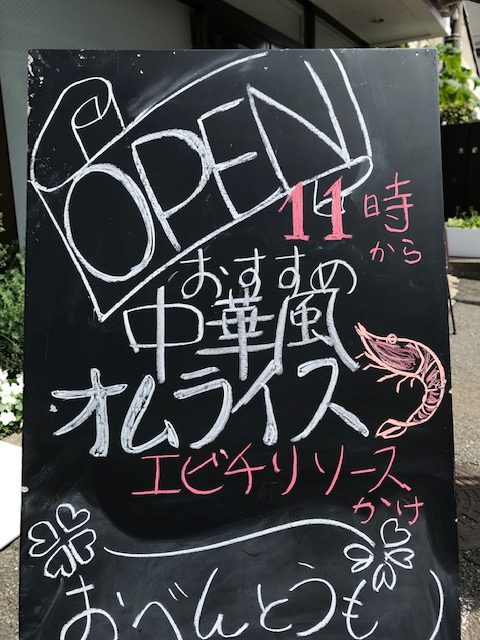 OPEN
11時
から
おすすめ
中華風
オムライス
エビチリソース
かけ
おべんとうも